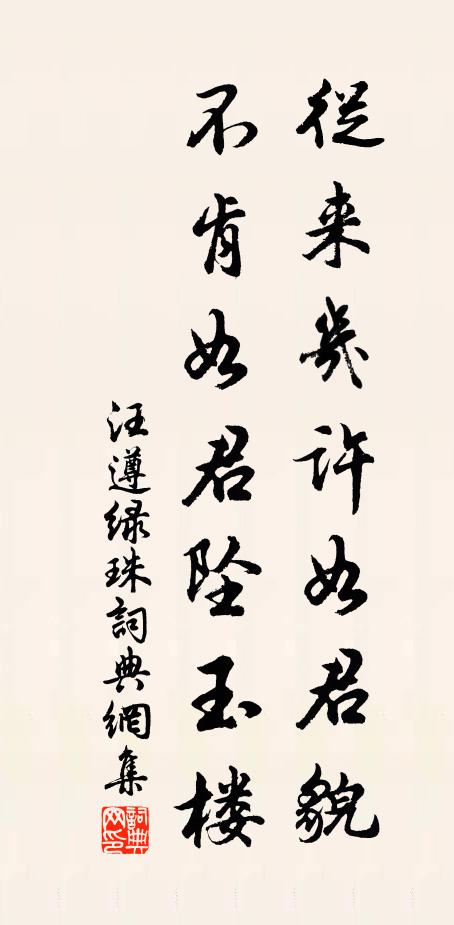 從来幾許如君貌
不肯如君坠玉楼
汪遵绿珠詞典網集
詞典网印